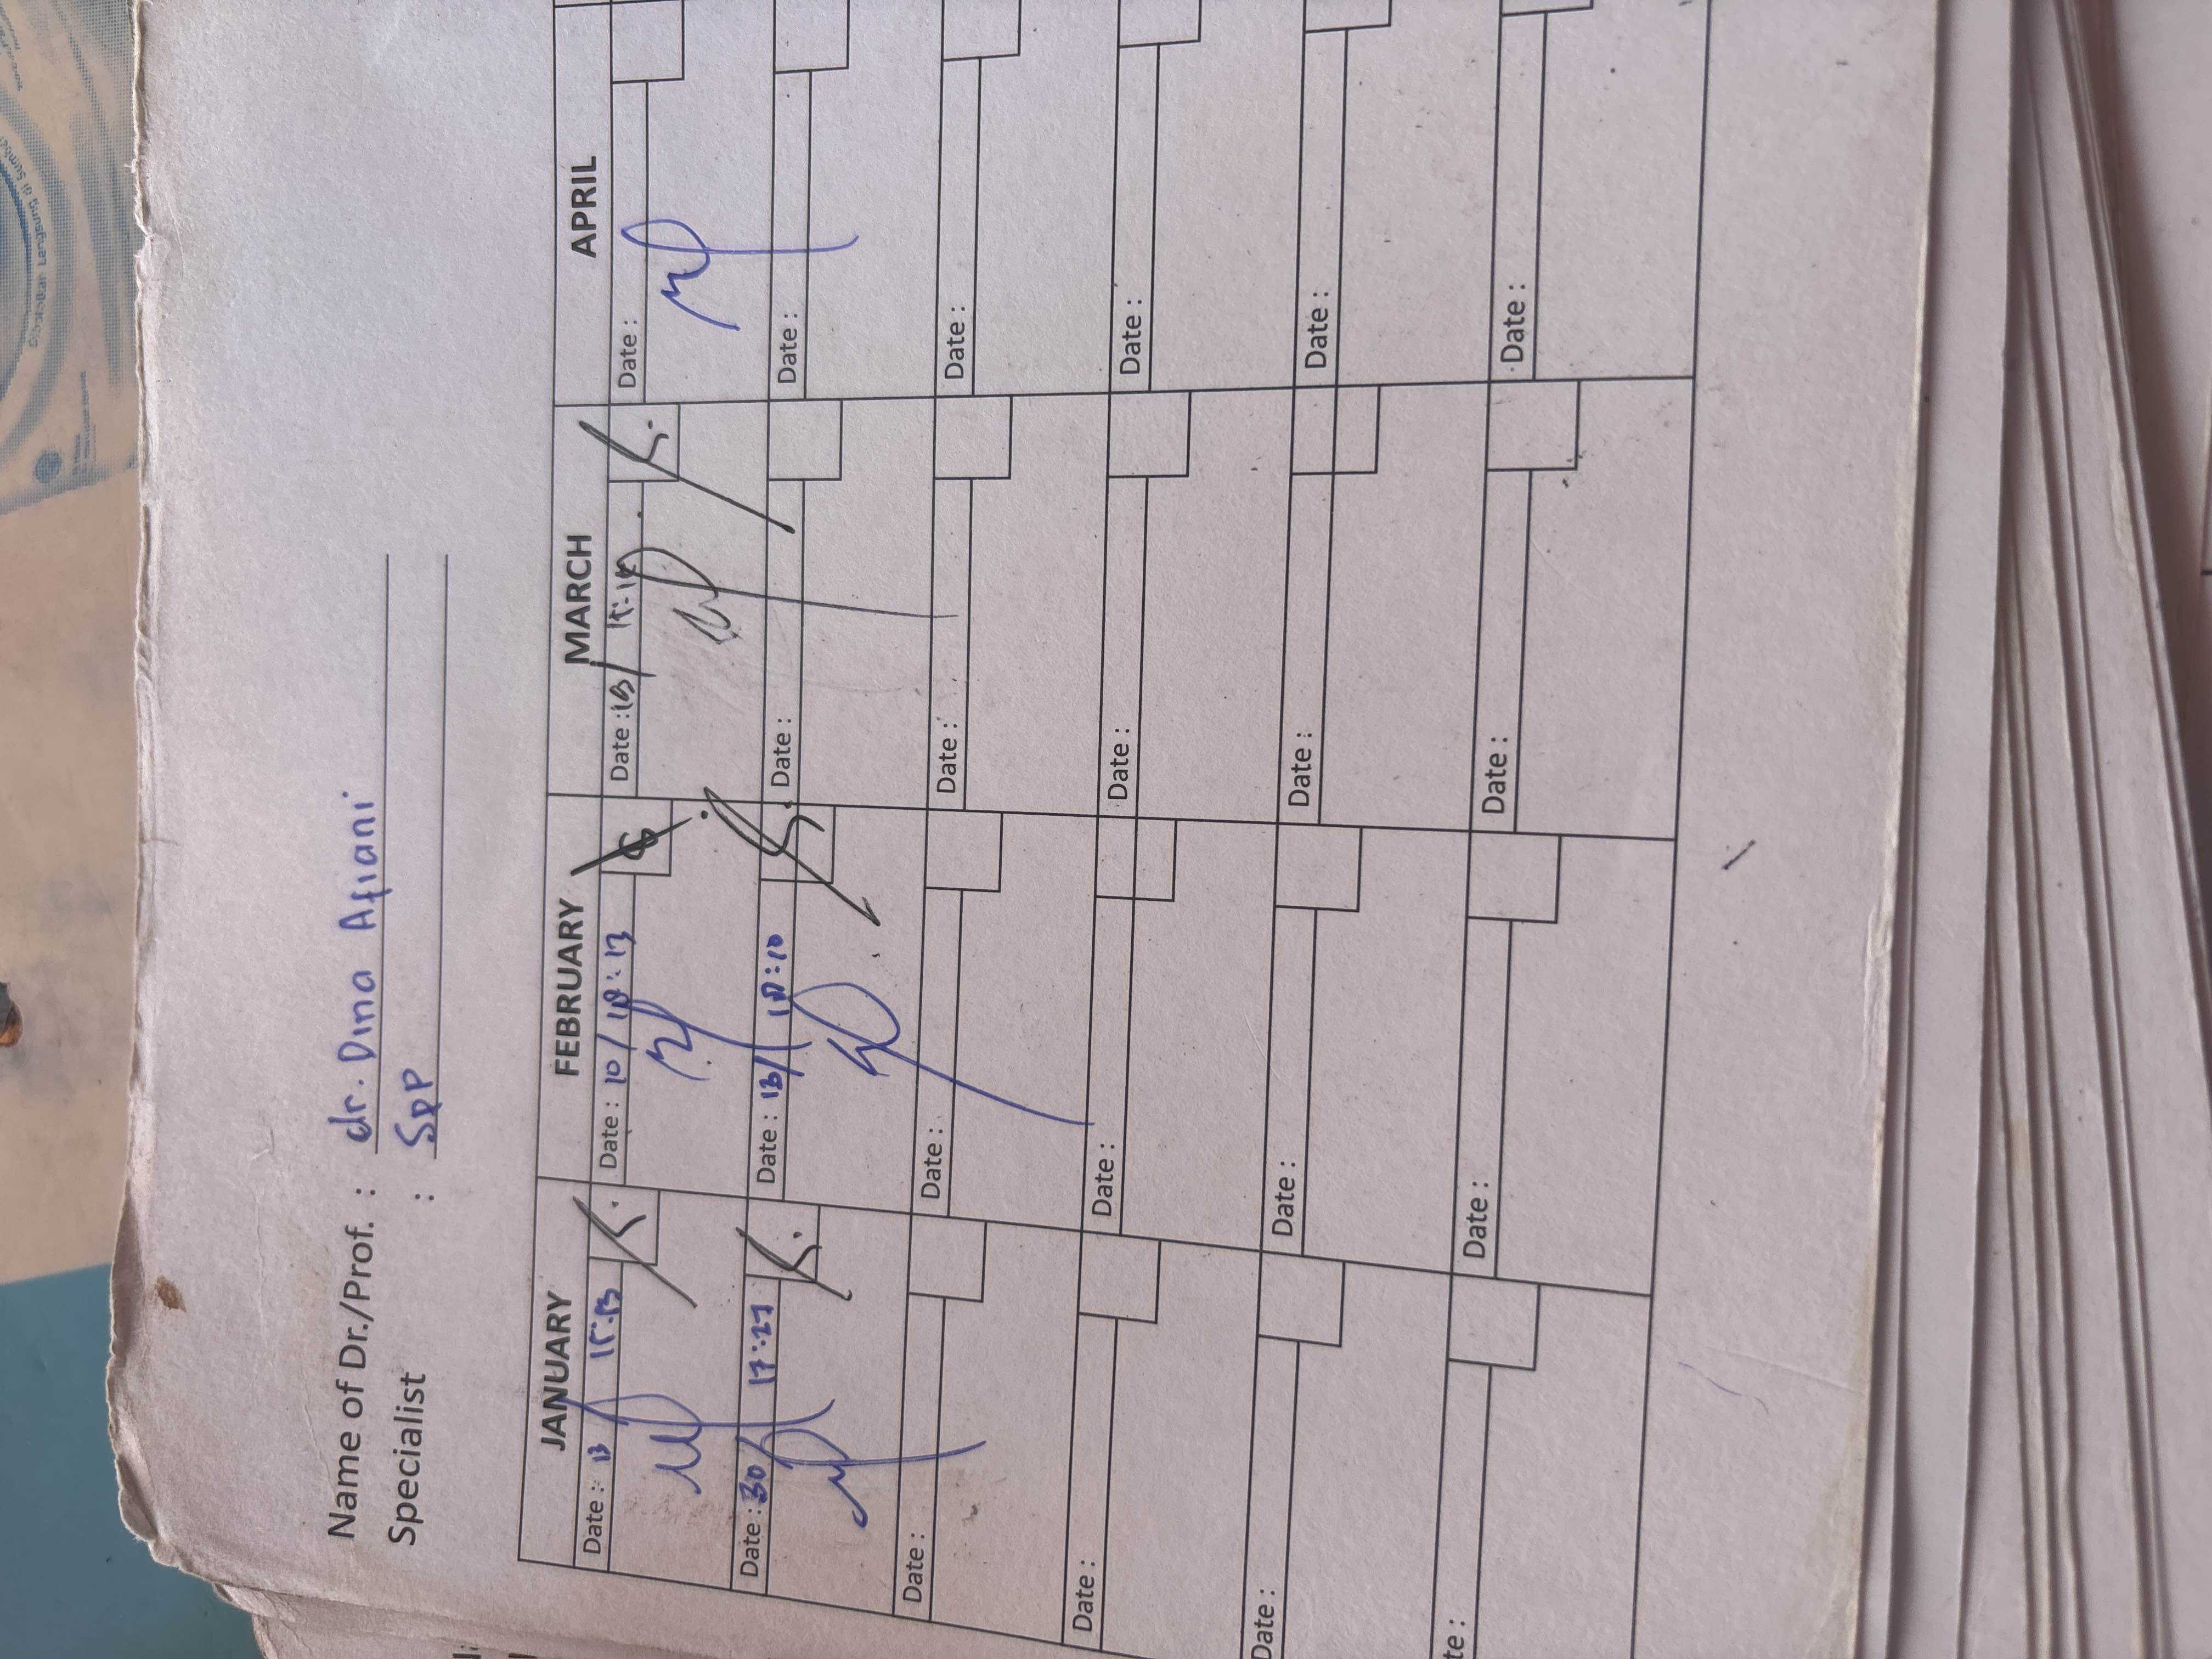 Name of Dr./Prof. : dr. Dina Afiani
Specialist : SpP
JANUARY FEBRUARY MARCH APRIL
Date : 13 15:13 Date : 10/ 18:13 Date : 13/ 15:14 Date :
Date : 30/ 17:27 Date : 13/ 18:10 Date : Date :
Date : Date : Date : Date :
Date : Date : Date : Date :
Date : Date : Date : Date :
te : Date : Date : Date :